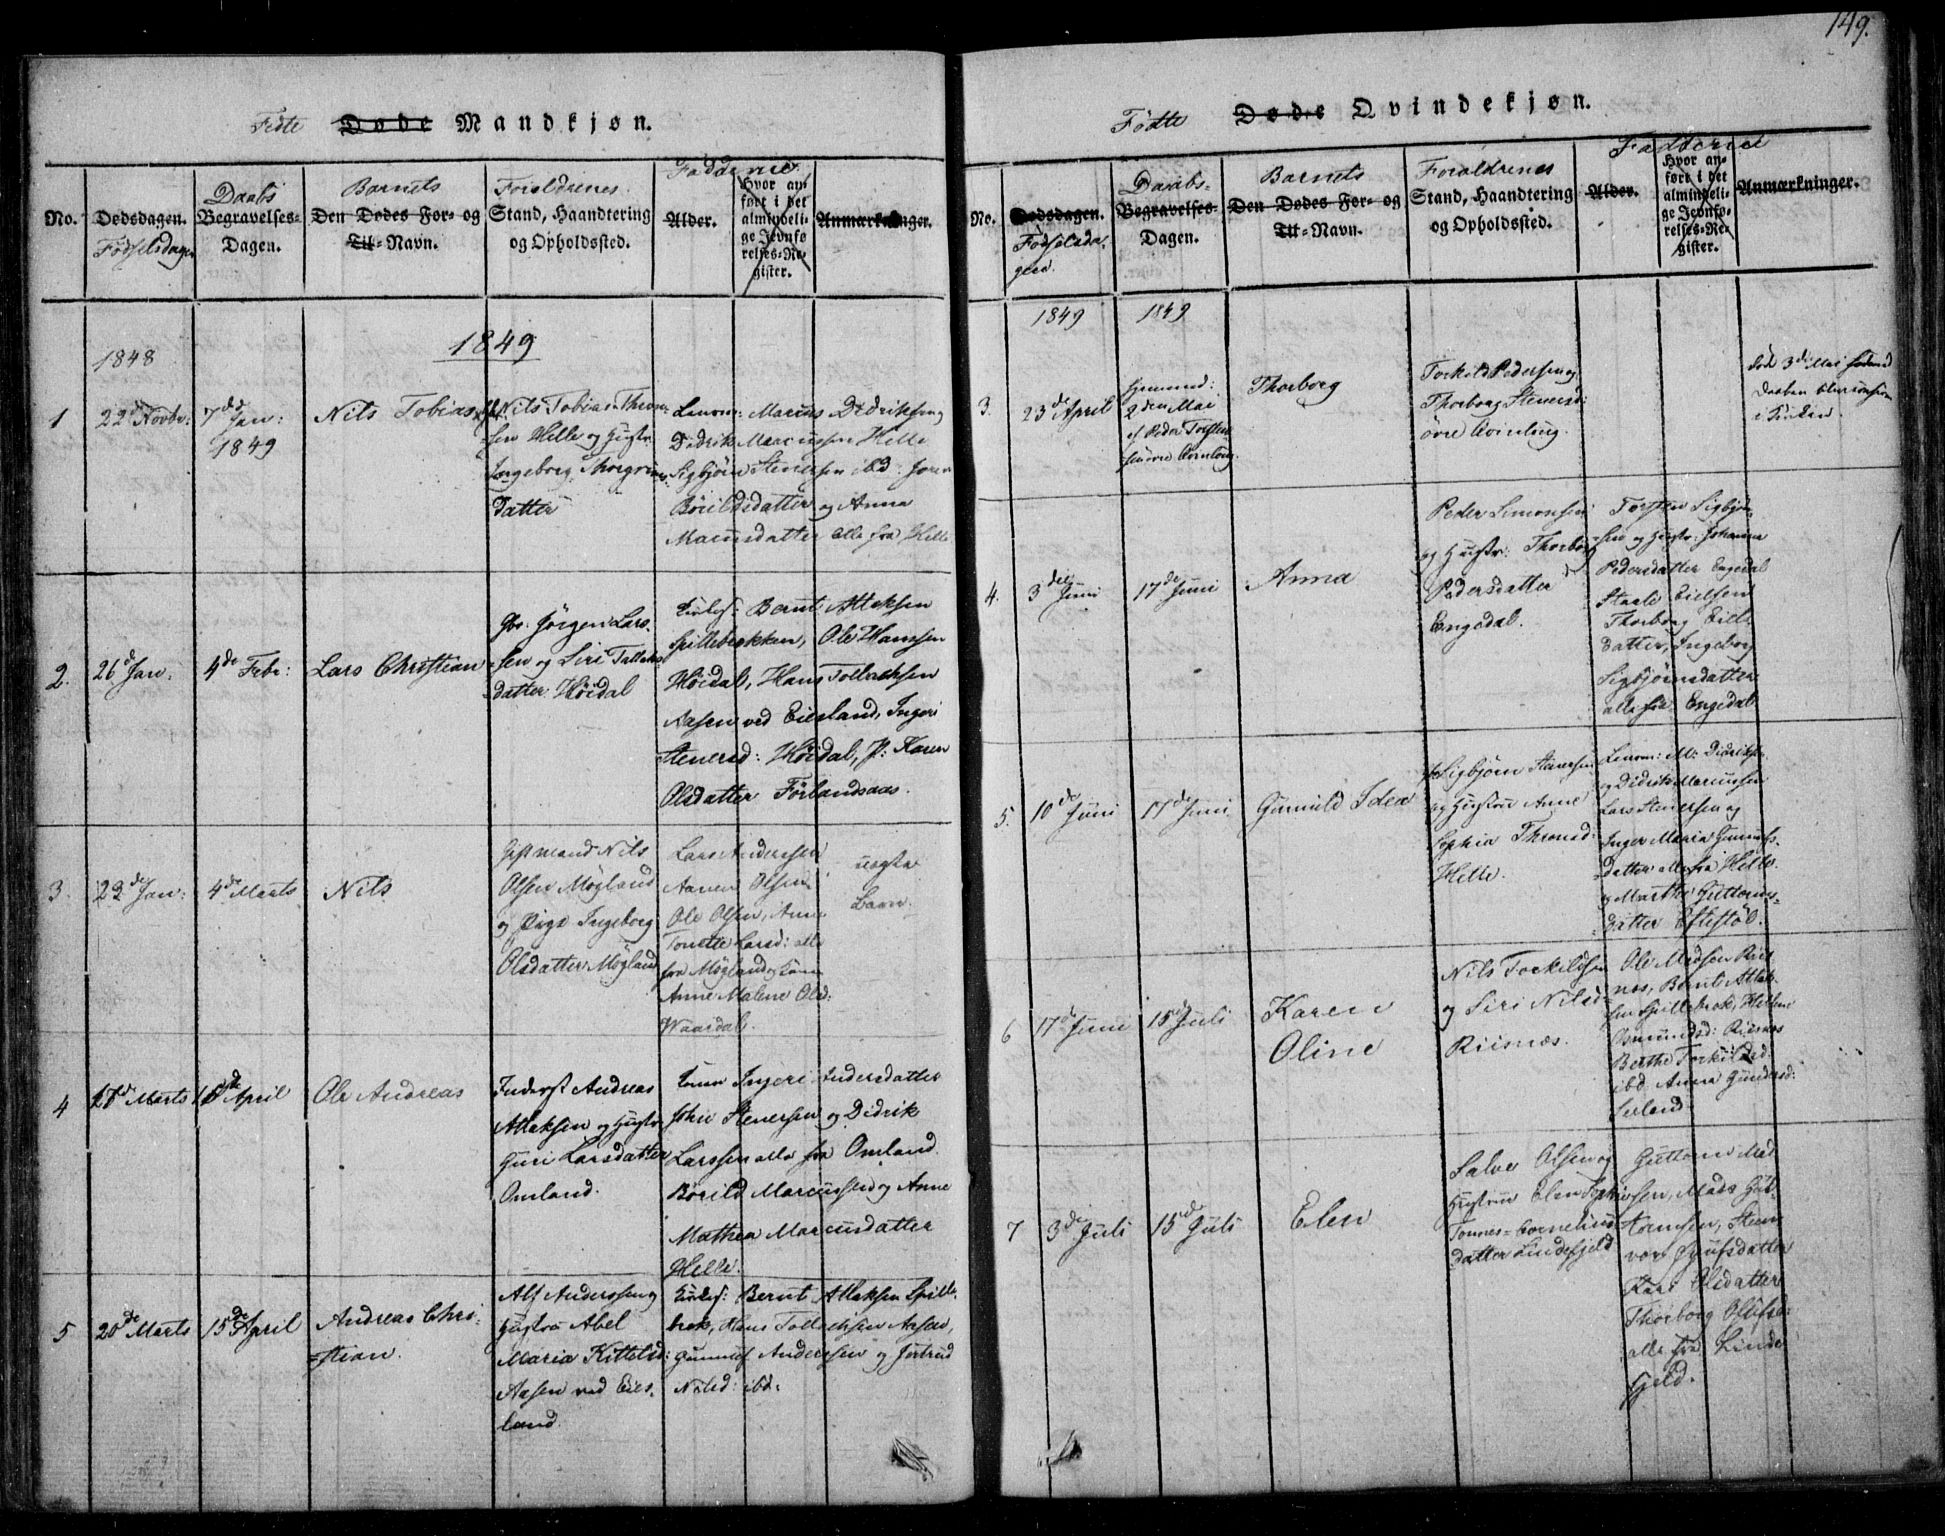 149.
Føtte Døde Mandkjøn.
No.
Dødsdagen.
Fødselsdagen
Daabs
Begravelses-
Dagen.
Barnets
Den Dødes For- og
Til-Navn.
Forældrenes
Stand, Haandtering
og Opholdssted.
Fadderne
Alder.
Hvor an-
ført i det
almindeli-
ge Jevnfø
relses-Re-
gister.
Anmærkninger.
1849
1848
1
22de Novbr:
7de Jan:
1849
Nils Tobias
Nils Tobias Thron-
sen Helle og Hustr:
Ingeborg Thorgrims-
datter
Lensm: Marcus Didriksen og
Didrik Marcussen Helle
Sigbjørn Stenersen ibd: Joren
Børildsdatter og Anna
Marcusdatter alle fra Helle
2.
26de Jan:
4de Febr:
Lars Christian
Gbr. Jørgen Lars-
sen og Siri Tallaks
datter Høidal
Kirkes: Bernt Attaksen
Spillebrokken, Ole Hanssen
Høidal, Hans Tollachsen
Aasen ved Eiesland, Ingeri
Stenersd: Høidal, P: Karen
Olsdatter Førlandsaas.
3.
23de Jan:
4de Marts
Nils
Giftmand Nils
Olsen Møgland
og Pige Ingeborg
Olsdatter Møgland
Lars Anderssen
Aanen Olsen
Ole Olsen, Anne
Tonette Larsd: alle
fra Møgland og Kone
Anne Malene Olsd:
Waardal.
uægte
Barn.
4
17de Marts
1ste April
Ole Andreas
Inderst Andreas
Attaksen og Hustr:
Guri Larsdatter
Omland.
Kone Ingeri Andersdatter
John Stenersen og Didrik
Larssen alle fra Omland.
Børild Marcussen og Anne
Mathea Marcusdatter
Helle.
5
20de Marts
15de April
Andreas Chri-
stian.
Alf Anderssen og
Hustru Abel
Maria Kittelsd:
Aasen ved Eies-
land
Kirkes: Bernt Attaksen Spille-
brok, Hans Tollachsen Aasen,
Gunnuf Anderssen og Jortrud
Nilsd: ibd:
Fødte Døde Qvindekjøn.
No.
Dødsdagen.
Fødselsda-
gen.
Daabs-
Begravelses-
Dagen.
Barnets
Den Dødes For- og
Til-Navn.
Forældrenes
Stand, Haandtering
og Opholdssted.
Fadderne
Alder.
Hvor an-
ført i det
almindeli-
ge Jevnfø-
relses-Re-
gister.
Anmærkninger.
1849
1849
3.
23de April
Hjemmed:
2den Mai
af Peder
Thorborg
Torkild Pedersen og
Thorborg Stenersd:
øvre Qvinlaug.
Død 3die Mai
Daaben
i Kirken.
4.
3die Juni
17de Juni
Anna
Peder Simonsen
og Hustr: Thorborg
Pedersdatter
Engedal.
Torsten Sigbjørn-
sen og Hustr: Johanna
Pedersdatter Engedal
Staale Eielsen
Thorborg Eiels
datter, Ingeborg
Sigbjørnsdatter
alle fra Engedal
5.
10de Juni
17de Juni
Gunuld Idea
Sigbjørn Stenersen
og Hustru Anne
Sophia Thronsd:
Helle.
Lensm: M: Didriks:
og Didrik Marcussen
Lars Stenersen og
Inger Maria Gunnufs-
datter alle fra Helle
og Marthe Guttorms-
datter Eftestøl.
6
17de Juni
15de Juli
Karen
Oline
Nils Torkildsen
og Siri Nilsd:
Riisnæs.
Ole Madsen Riis
næs, Bernt Attak-
sen Spillebrok, Helene
Osmundsd: Riisnæs
Berthe Torkildsd.
ibd. Anna Gundersd:
7
3de Juli
15de Juli
Elen
Salve Olsen og
Hustrue Elen Sophie
Tonnes-Cornelius
datter Lindefjeld
Guttorm Mad
sen, Mads Gut-
tormsen,
Kari Olsdatter
Thorborg
alle fra Linde
fjeld.